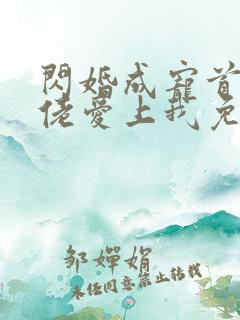 閃婚成寵首
佬愛上我免
邹婵娟
未经同意禁止转载